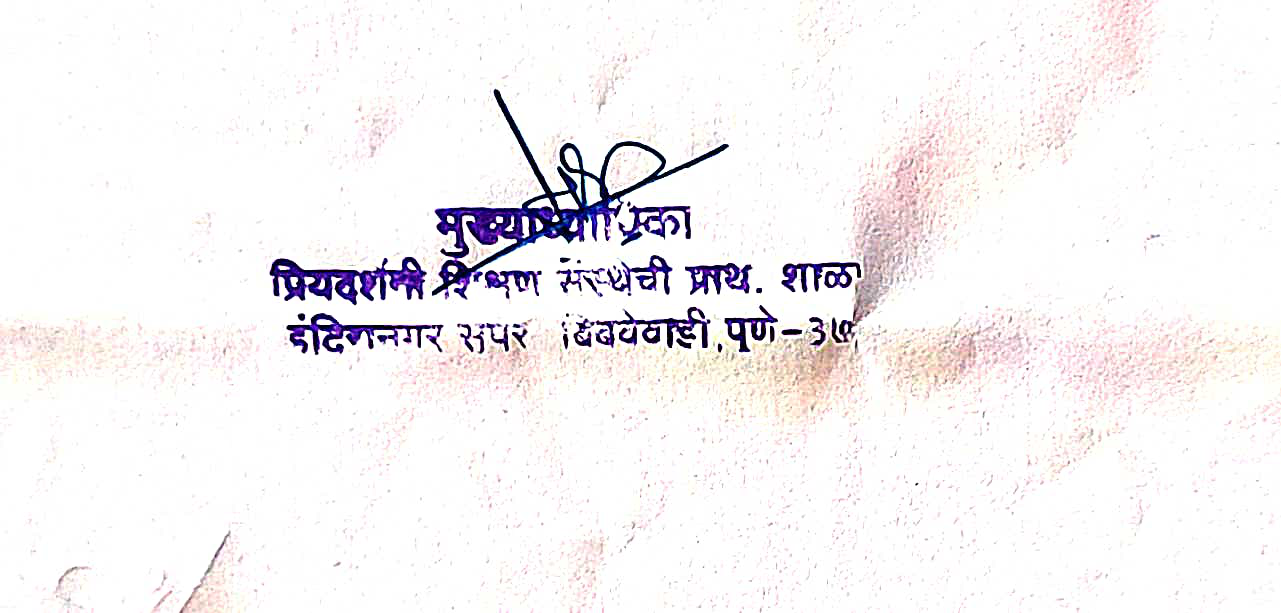 मुख्याध्यापिका
प्रियदर्शनी शिक्षण संस्थेची प्राथ. शाळा
इंदिरानगर सुपर बिबवेवाडी, पुणे-३७